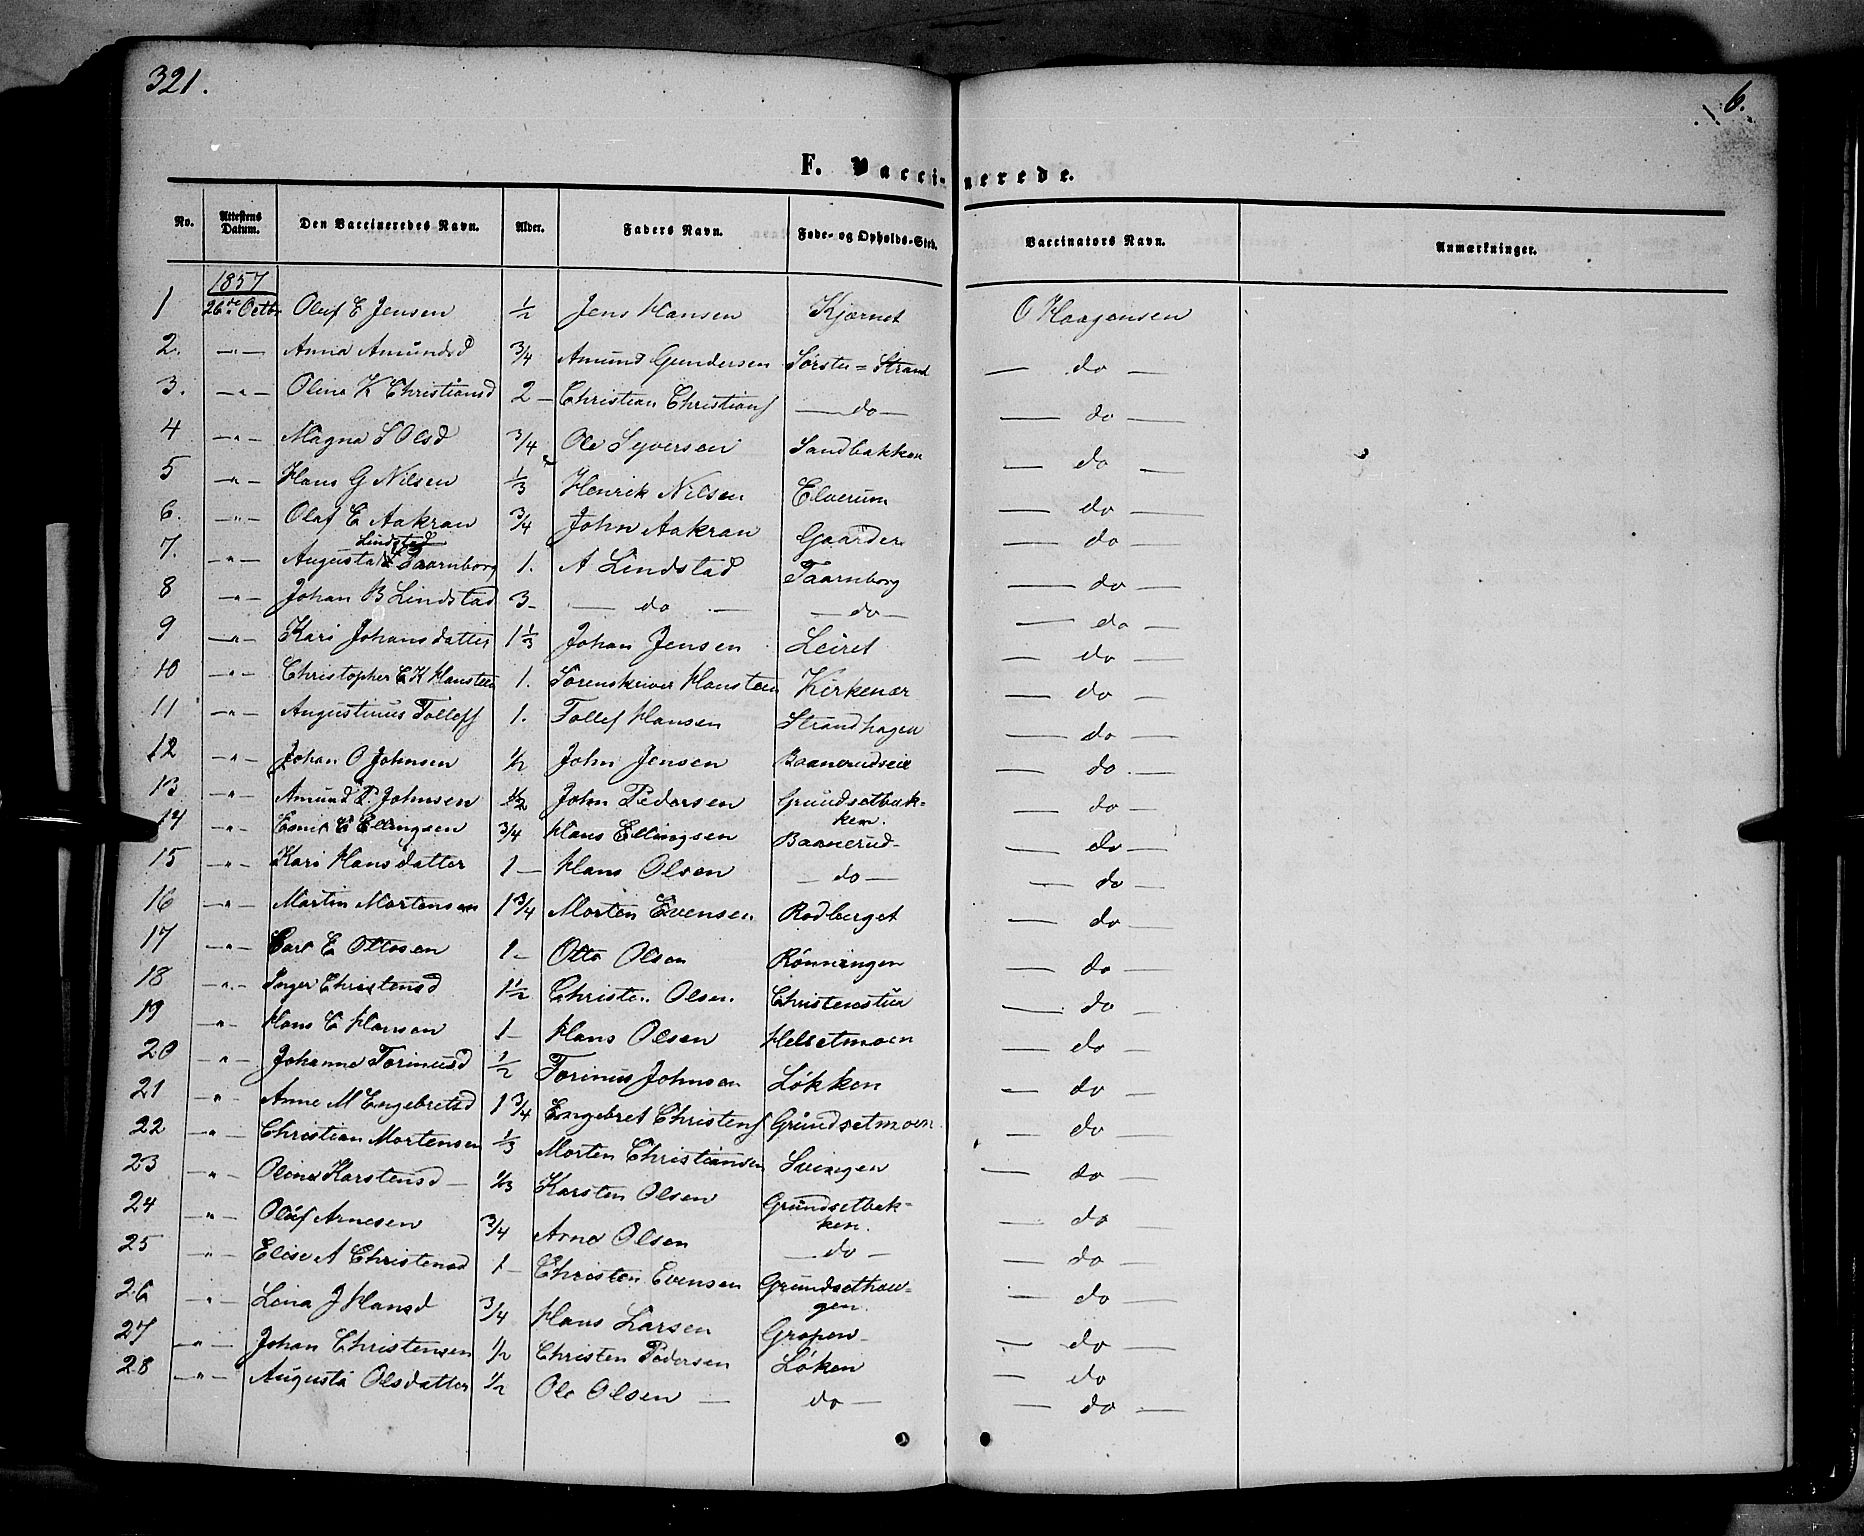 321.
6.
F. Vaccinerede.
No. Attestens Datum. Den Vaccineredes Navn. Alder. Faders Navn. Føde- og Opholds-Sted. Vaccinators Navn. Anmærkninger.
1857
1 26de Octbr Oluf E Jensen 1/2 Jens Hansen Kjærnet O Haagensen
2. —"— Anna Amundsd 3/4 Amund Gundersen Sørste = Strand — do —
3. —"— Olina K Christiansd 2 — Christian Christians — do — — do —
4 —"— Magna S Olsd 3/4 Ole Syversen Sandbakken — do —
5 —"— Hans G Nilsen 1/3 Henrik Nilsen Elverum — do —
6. —"— Olaf C Aakran 3/4 John Aakran Gaarder — do —
Lindstad
7. —"— Augusta Taarnborg 1. A Lindstad Taarnborg — do —
8 —"— Johan B Lindstad 3 — — do — — do — — do —
9 —"— Kari Johansdatter 1 1/3 Johan Jensen Leiret — do —
10 —"— Christopher C K Hansteen 1. Sorenskriver Hansteen Kirkenær — do —
11 —"— Augustinus Tollefs 1. Tollef Hansen Strandhagen — do —
12 —"— Johan O Johnsen 1/2 John Jensen Baanerudseie — do —
13 —"— Amund P. Johnsen 1/2 John Pedersen Grundsetbak-
ken. — do —
14 —"— E Ellingsen 3/4 Hans Ellingsen Baanerud — do —
15 —"— Kari Hansdatter 1 — Hans Olsen — do — — do —
16 —"— Martin Mortensen 1 3/4 Morten Evensen Rodberget — do —
17 —"— Carl E Ottosen 1 — Otto Olsen Rønningen — do —
18 —"— Inger Christensd 1 1/2 Christen Olsen Christenstua — do —
19 —"— Hans C Hansen 1 — Hans Olsen Helsetmoen — do —
20 —"— Johanne Torinusd 1/2 Torinus Johnsen Løkken — do —
21 —"— Anne M Engebretsd 1 3/4 Engebret Christens Grundsetmoen — do —
22 —"— Christian Mortensen 1/3 Morten Christiansen Svingen — do —
23 —"— Olina Karstensd — 1/3 Karsten Olsen Grundsetbak-
ken. — do —
24 —"— Oluf Arnesen 3/4 Arne Olsen — do — — do —
25 —"— Elise A Christensd 1 — Christen Evensen Grundsethau-
gen. — do —
26 —"— Lina J Hansd 3/4 Hans Larsen Gropen — do —
27 —"— Johan Christensen 1/2 Christen Pedersen Løken — do
28 —"— Augusta Olsdatter 1/2 Ole Olsen — do — — do —